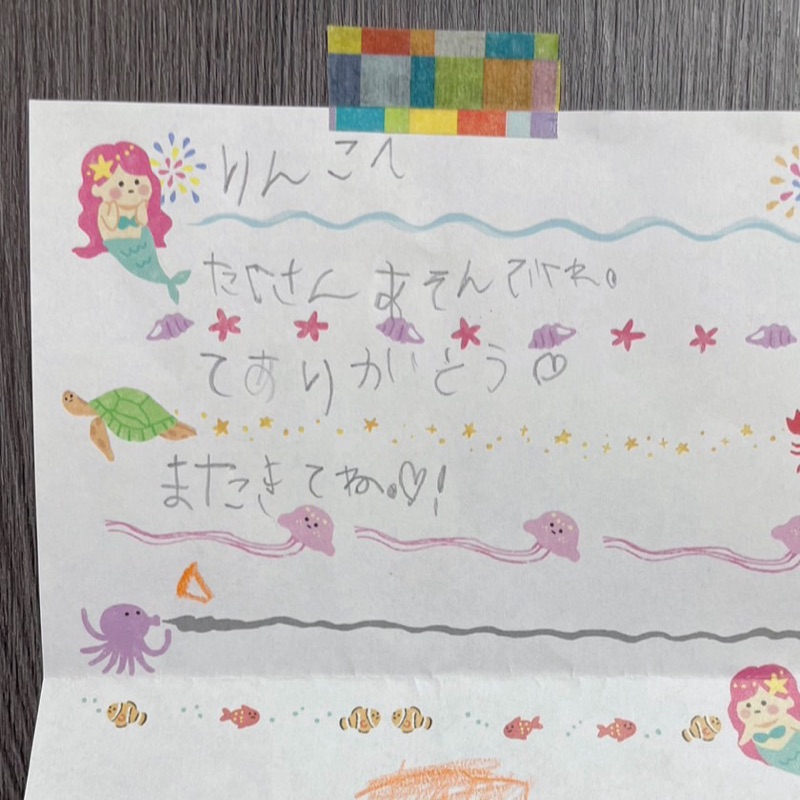 りんこへ
たくさんあそんでくれ。
てありがとう♡
またきてね。♡!